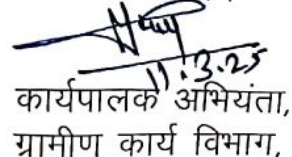 11.3.25
कार्यपालक अभियंता,
ग्रामीण कार्य विभाग,